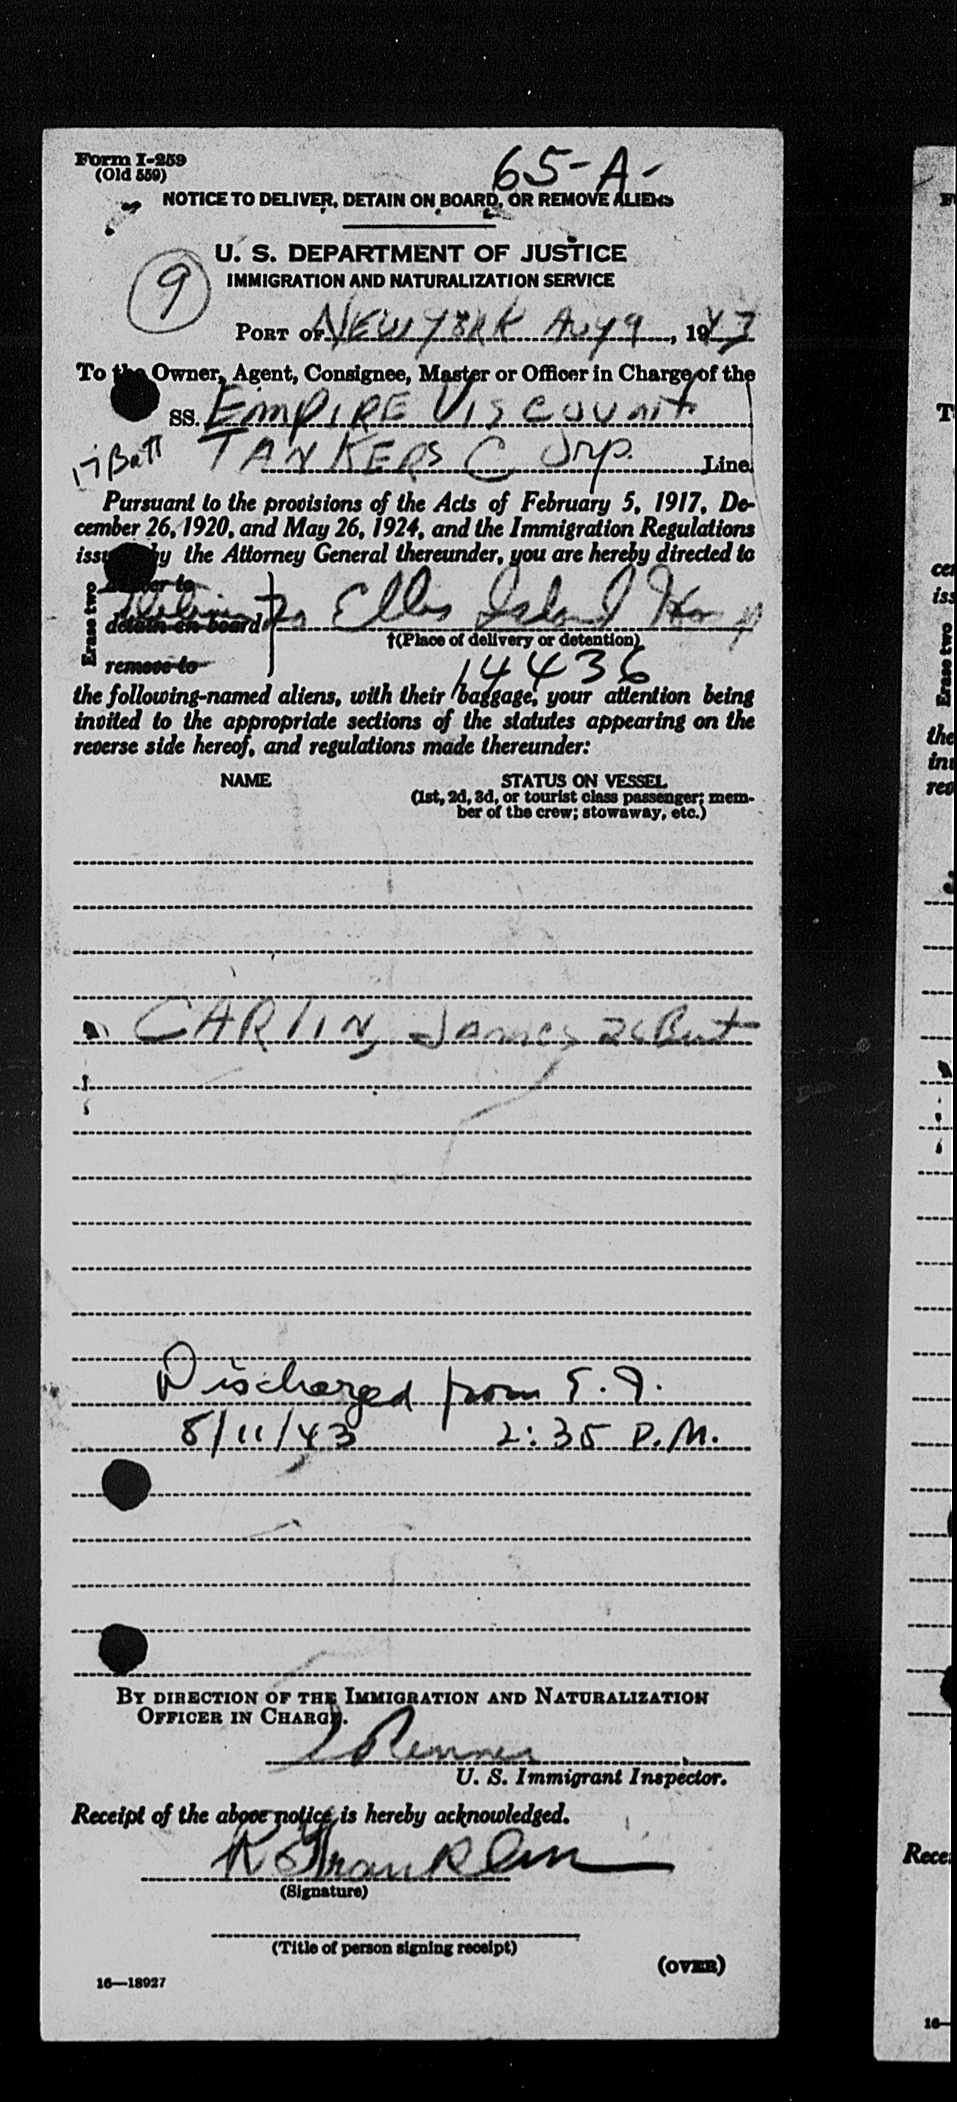 Form I-259
(Old 559)
65-A-
NOTICE TO DELIVER, DETAIN ON BOARD, OR REMOVE ALIENS
U. S. DEPARTMENT OF JUSTICE
IMMIGRATION AND NATURALIZATION SERVICE
9
PORT OF NEW YORK Aug 9, 1943
To the Owner, Agent, Consignee, Master or Officer in Charge of the
SS. EMPIRE VISCOUNT
17 Batt TANKERS Corp. Line.
Pursuant to the provisions of the Acts of February 5, 1917, De-
cember 26, 1920, and May 26, 1924, and the Immigration Regulations
issued by the Attorney General thereunder, you are hereby directed to
Erase two
deliver to
Deliver To Ellis Island Hosp
detain on board
†(Place of delivery or detention)
remove to
14436
the following-named aliens, with their baggage, your attention being
invited to the appropriate sections of the statutes appearing on the
reverse side hereof, and regulations made thereunder:
NAME STATUS ON VESSEL
(1st, 2d, 3d, or tourist class passenger; mem-
ber of the crew; stowaway, etc.)
CARLIN, James
Discharged from E.I.
8/11/43 2:35 P.M.
BY DIRECTION OF THE IMMIGRATION AND NATURALIZATION
OFFICER IN CHARGE.
U. S. Immigrant Inspector.
Receipt of the above notice is hereby acknowledged.
(Signature)
(Title of person signing receipt)
(OVER)
16—18927